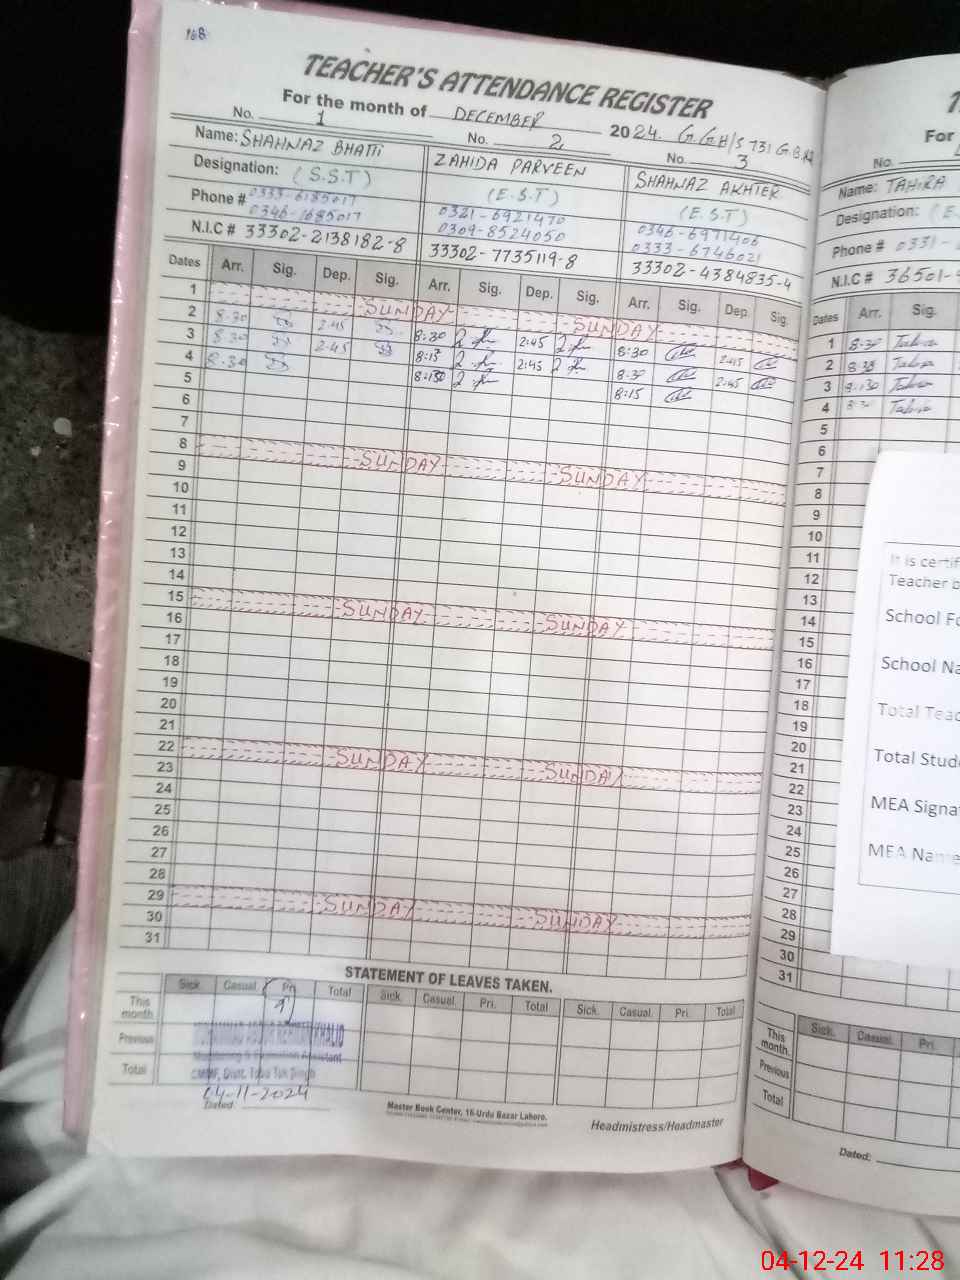 168
TEACHER'S ATTENDANCE REGISTER
For the month of DECEMBER 2024. G.G.H/S 731 G.B
No. 1 No. 2 No. 3
Name: SHAHNAZ BHATTI ZAHIDA PARVEEN SHAHNAZ AKHTER
Designation: (S.S.T) (E.S.T) (E.S.T)
Phone # 0333-6185017 0321-6921470 0346-6971406
0346-1685017 0309-8524050 0333-6746021
N.I.C # 33302-2138182-8 33302-7735119-8 33302-4384835-4
Dates Arr. Sig. Dep. Sig. Arr. Sig. Dep. Sig. Arr. Sig. Dep. Sig.
1 SUNDAY SUNDAY
2 8:30 2:45 8:30 2:45 8:30 2:45
3 8:30 2:45 8:15 2:45 8:30 2:45
4 8:30 8:15
5
6
7
8 SUNDAY SUNDAY
9
10
11
12
13
14
15 SUNDAY SUNDAY
16
17
18
19
20
21
22 SUNDAY SUNDAY
23
24
25
26
27
28
29 SUNDAY SUNDAY
30
31
STATEMENT OF LEAVES TAKEN.
Sick. Casual. Pri. Total Sick. Casual. Pri. Total Sick. Casual. Pri. Total
This month
Previous
Total
Monitoring & Evaluation Assistant
Distt. Toba Tek Singh
04-11-2024
Dated
Master Book Center, 16-Urdu Bazar Lahore.
Headmistress/Headmaster
For
No.
Name: TAHIRA
Designation: (E.
Phone # 0331-
N.I.C # 36501-
Dates Arr. Sig.
1 8:30 Tahira
2 8:30 Tahira
3 Tahira
4 Tahira
5
6
7
8
9
10
11
12
13
14
15
16
17
18
19
20
21
22
23
24
25
26
27
28
29
30
31
It is certif
Teacher b
School Fo
School Na
Total Teac
Total Stude
MEA Signat
MEA Name
Sick. Casual. Pri.
This month.
Previous
Total
Dated:
04-12-24 11:28